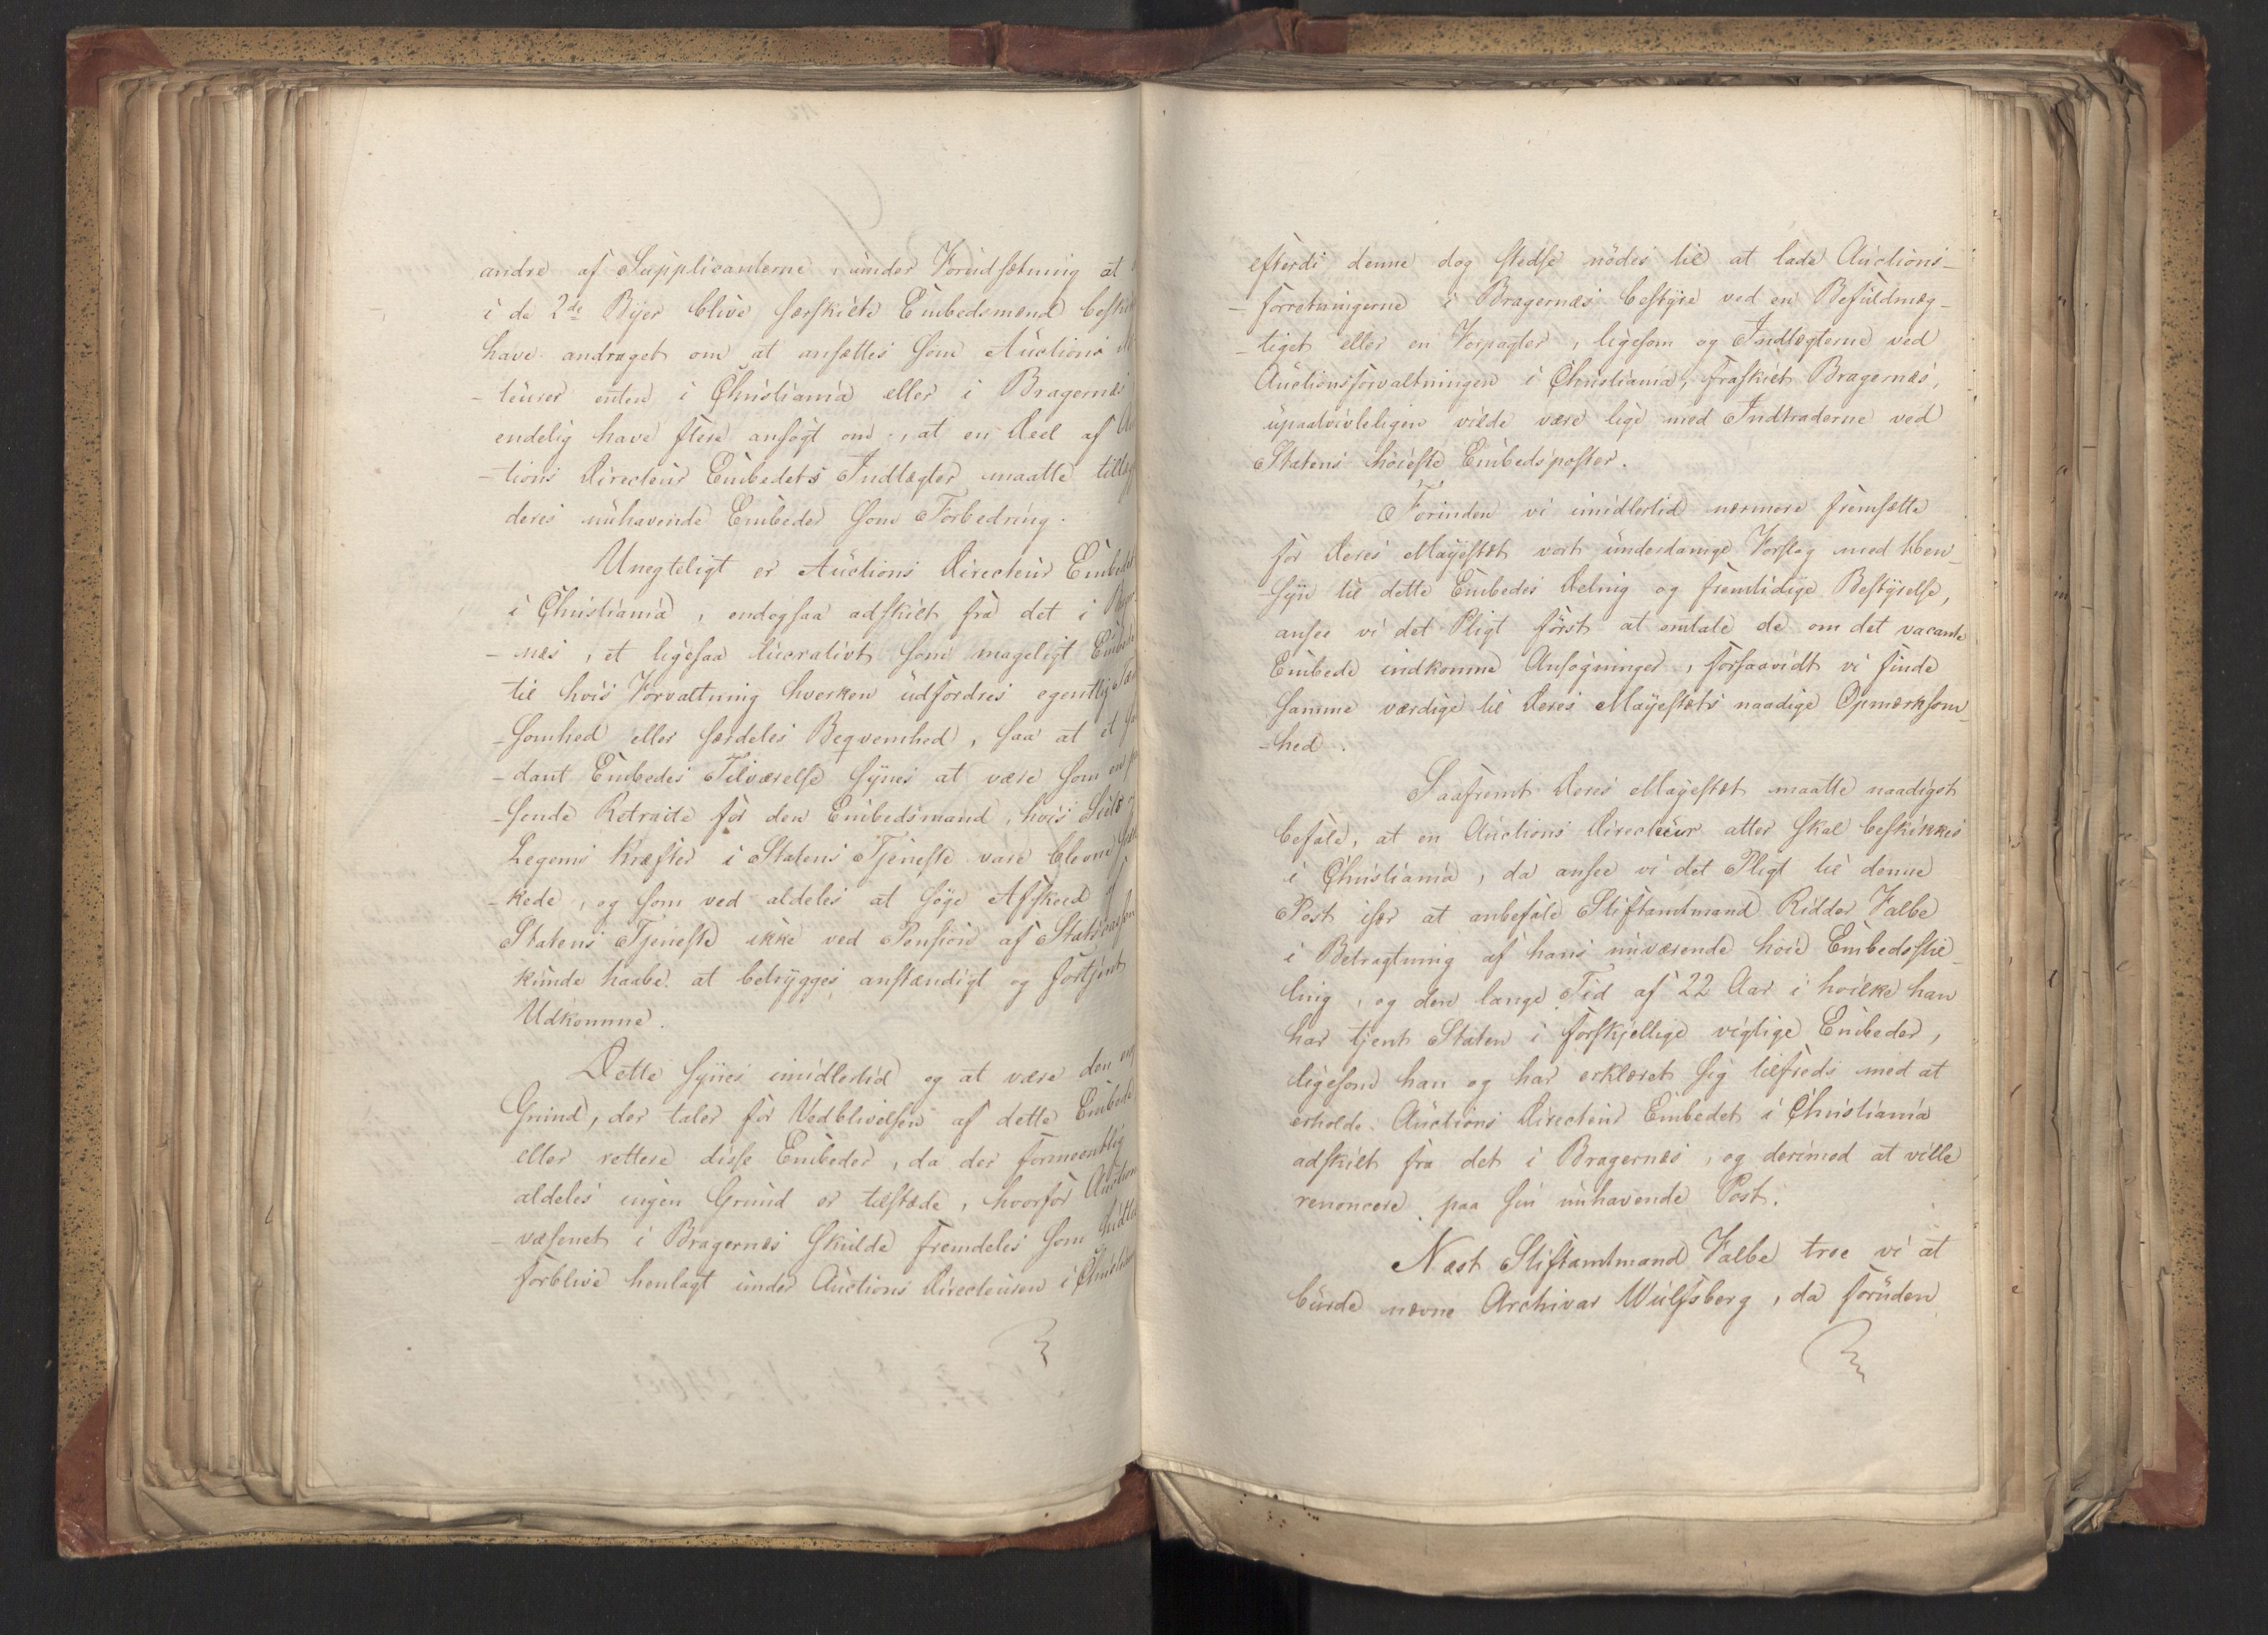 andre af Supplicanterne, under Forudsætning at
i de 2de Byer blive særskilte Embedsmænd
have andraget om at ansættes som Auctions
-teurer enten i Christiania eller i Bragernæs
endelig have flere ansøgt om, at en Deel af
-tions Directeur Embedets Indtægter maatte
deres nuhavende Embeder som Forbedring.
Unegteligt er Auctions Directeur
i Christiania, endogsaa adskilt fra det i
-næs, et ligesaa lucrativt som mageligt
til hvis Forvaltning hverken udfordres egentlig
-somhed eller særdeles Beqvemhed, saa at et
-dant Embedes Tilværelse synes at være som en
-sende Retraite for den Embedsmand, hvis
Legems Kræfter i Statens Tjeneste vare blevne
-kede, og som ved aldeles at søge Afskeed af
Statens Tjeneste ikke ved Pension af
kunde haabe at betrygges anstændigt og fortjent
Udkomme.
Dette synes imidlertid og at være den
Grund, der taler for Vedblivelsen af dette
eller rettere disse Embeder, da der formeentlig
aldeles ingen Grund er tilstæde, hvorfor
-væsenet i Bragernæs skulde fremdeles som
forblive henlagt under Auctions Directeuren i
efterdi denne dog stedse nødes til at lade Auctions-
-forretningerne i Bragernæs bestyre ved en Befuldmæg-
-tiget eller en Forpagter, ligesom og Indtægterne ved
Auctionsforvaltningen i Christiania, fraskilt Bragernæs,
upaatvivleligen vilde være lige med Indtraderne ved
Statens høieste Embedsposter.
Forinden vi imidlertid nærmere fremsætte
for Deres Mayestæt vort underdanige Forslag med Hen-
-syn til dette Embedes Deling og fremtidige Bestyrelse,
ansee vi det Pligt først at omtale de om det vacante
Embede indkomne Ansøgninger, forsaavidt vi finde
samme værdige til Deres Mayestæts naadige Opmærksom-
-hed.
Saafremt Deres Mayestæt maatte naadigst
befale, at en Auctions Directeur atter skal beskikkes
i Christiania, da ansee vi det Pligt til denne
Post især at anbefale Stiftamtmand Ridder Falbe
i Betragtning af hans nuværende høie Embedsstil-
ling, og den lange Tid af 22 Aar i hvilke han
har tjent Staten i forskjellige vigtige Embeder,
ligesom han og har erklæret sig tilfreds med at
erholde Auctions Directeur Embedet i Christiania
adskilt fra det i Bragernæs, og derimod at ville
renoncere paa sin nuhavende Post.
Næst Stiftamtmand Falbe troe vi at
burde nævne Archivar Wulfsberg, da foruden